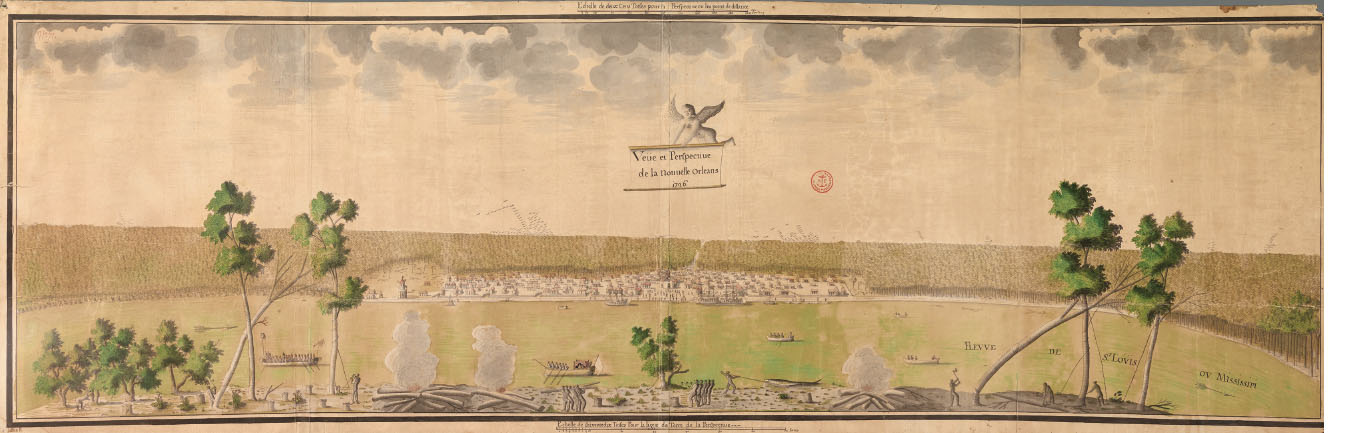 Echelle de deux Cens Toises pour la Perspective au point de distance
Veüe et Perspective
de la Nouuelle Orleans
1726
FLEUVE DE St LOVIS OV Mississipi
Echelle de Toises Pour la ligne de Terre de la Perspective